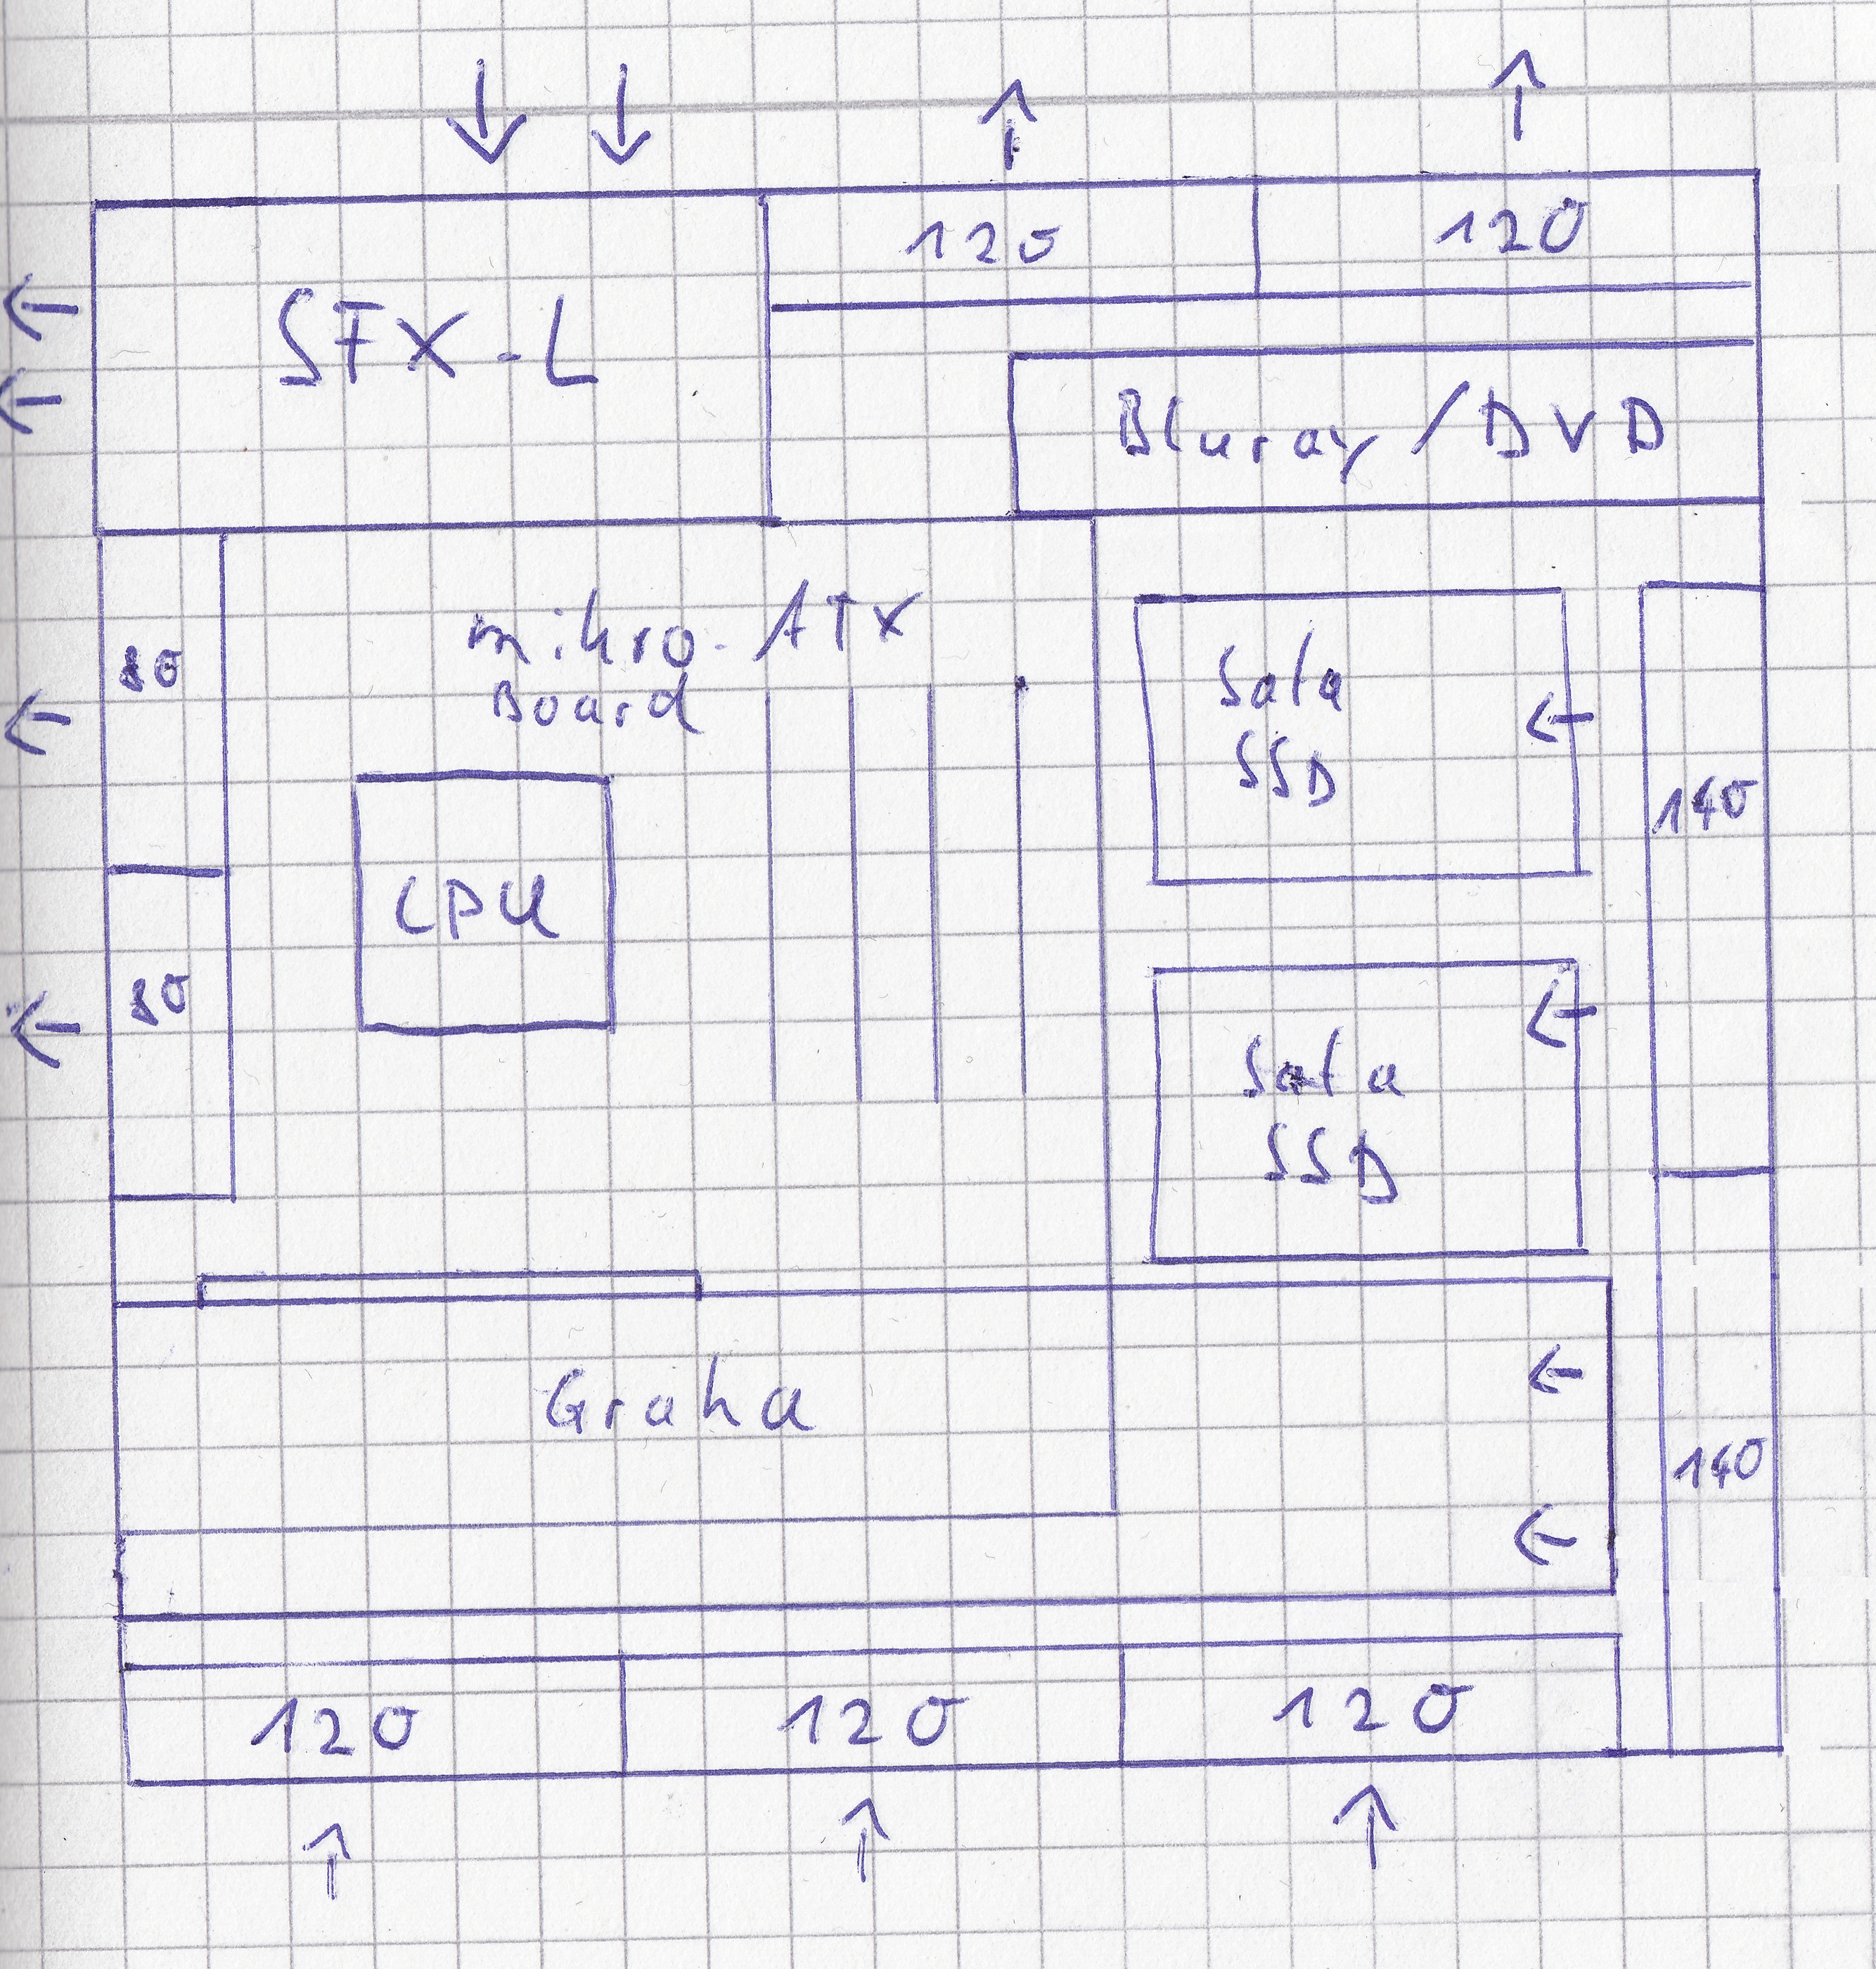 120
120
STX-L
Bluray/DVD
mikro-ATX
Board
80
Sata
SSD
140
CPU
80
Sata
SSD
Graka
140
120
120
120